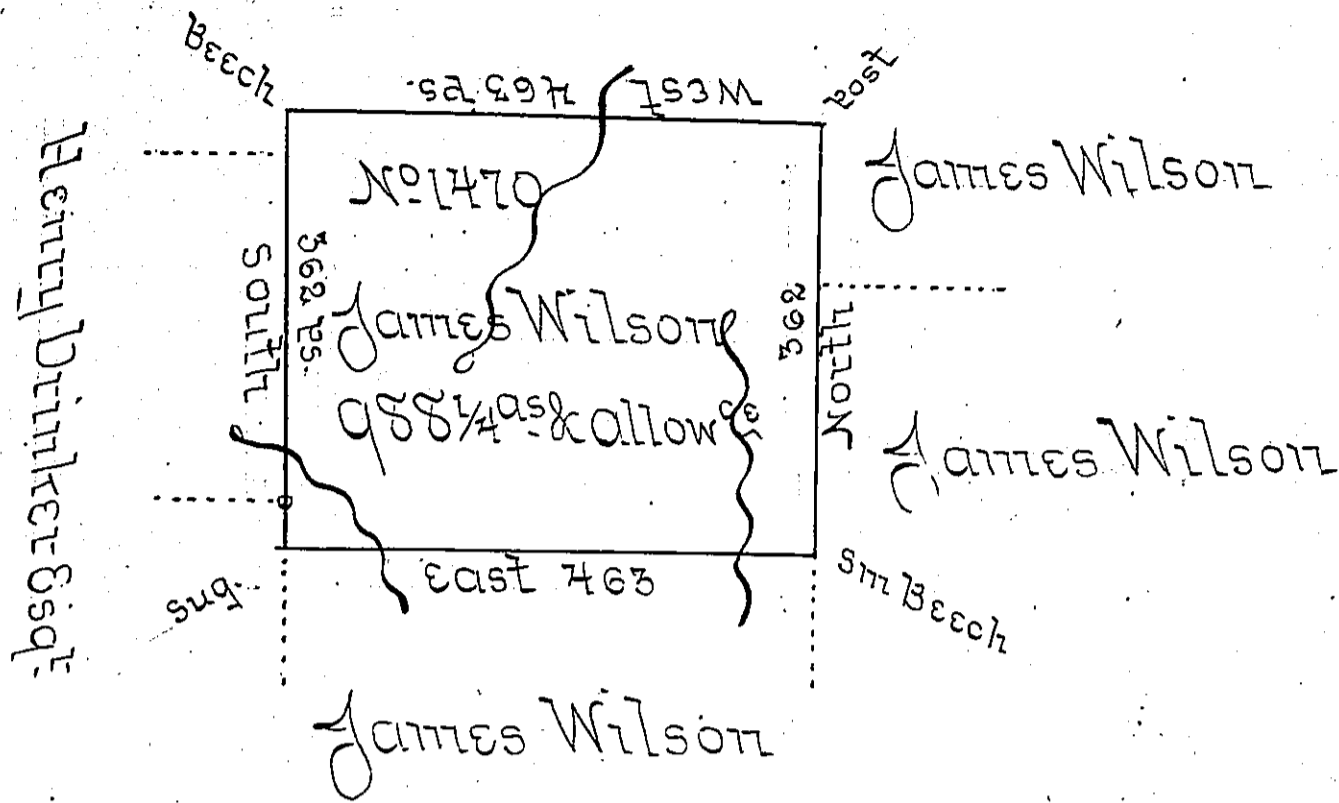 Beech
West 463 Ps.
Post
Henry Drinker Esqr.
No 1470
James Wilson
South
362 Ps.
James Wilson
362
North
988 1/4 as & allowce
James Wilson
East 463
Sm Beech
Sug.
James Wilson